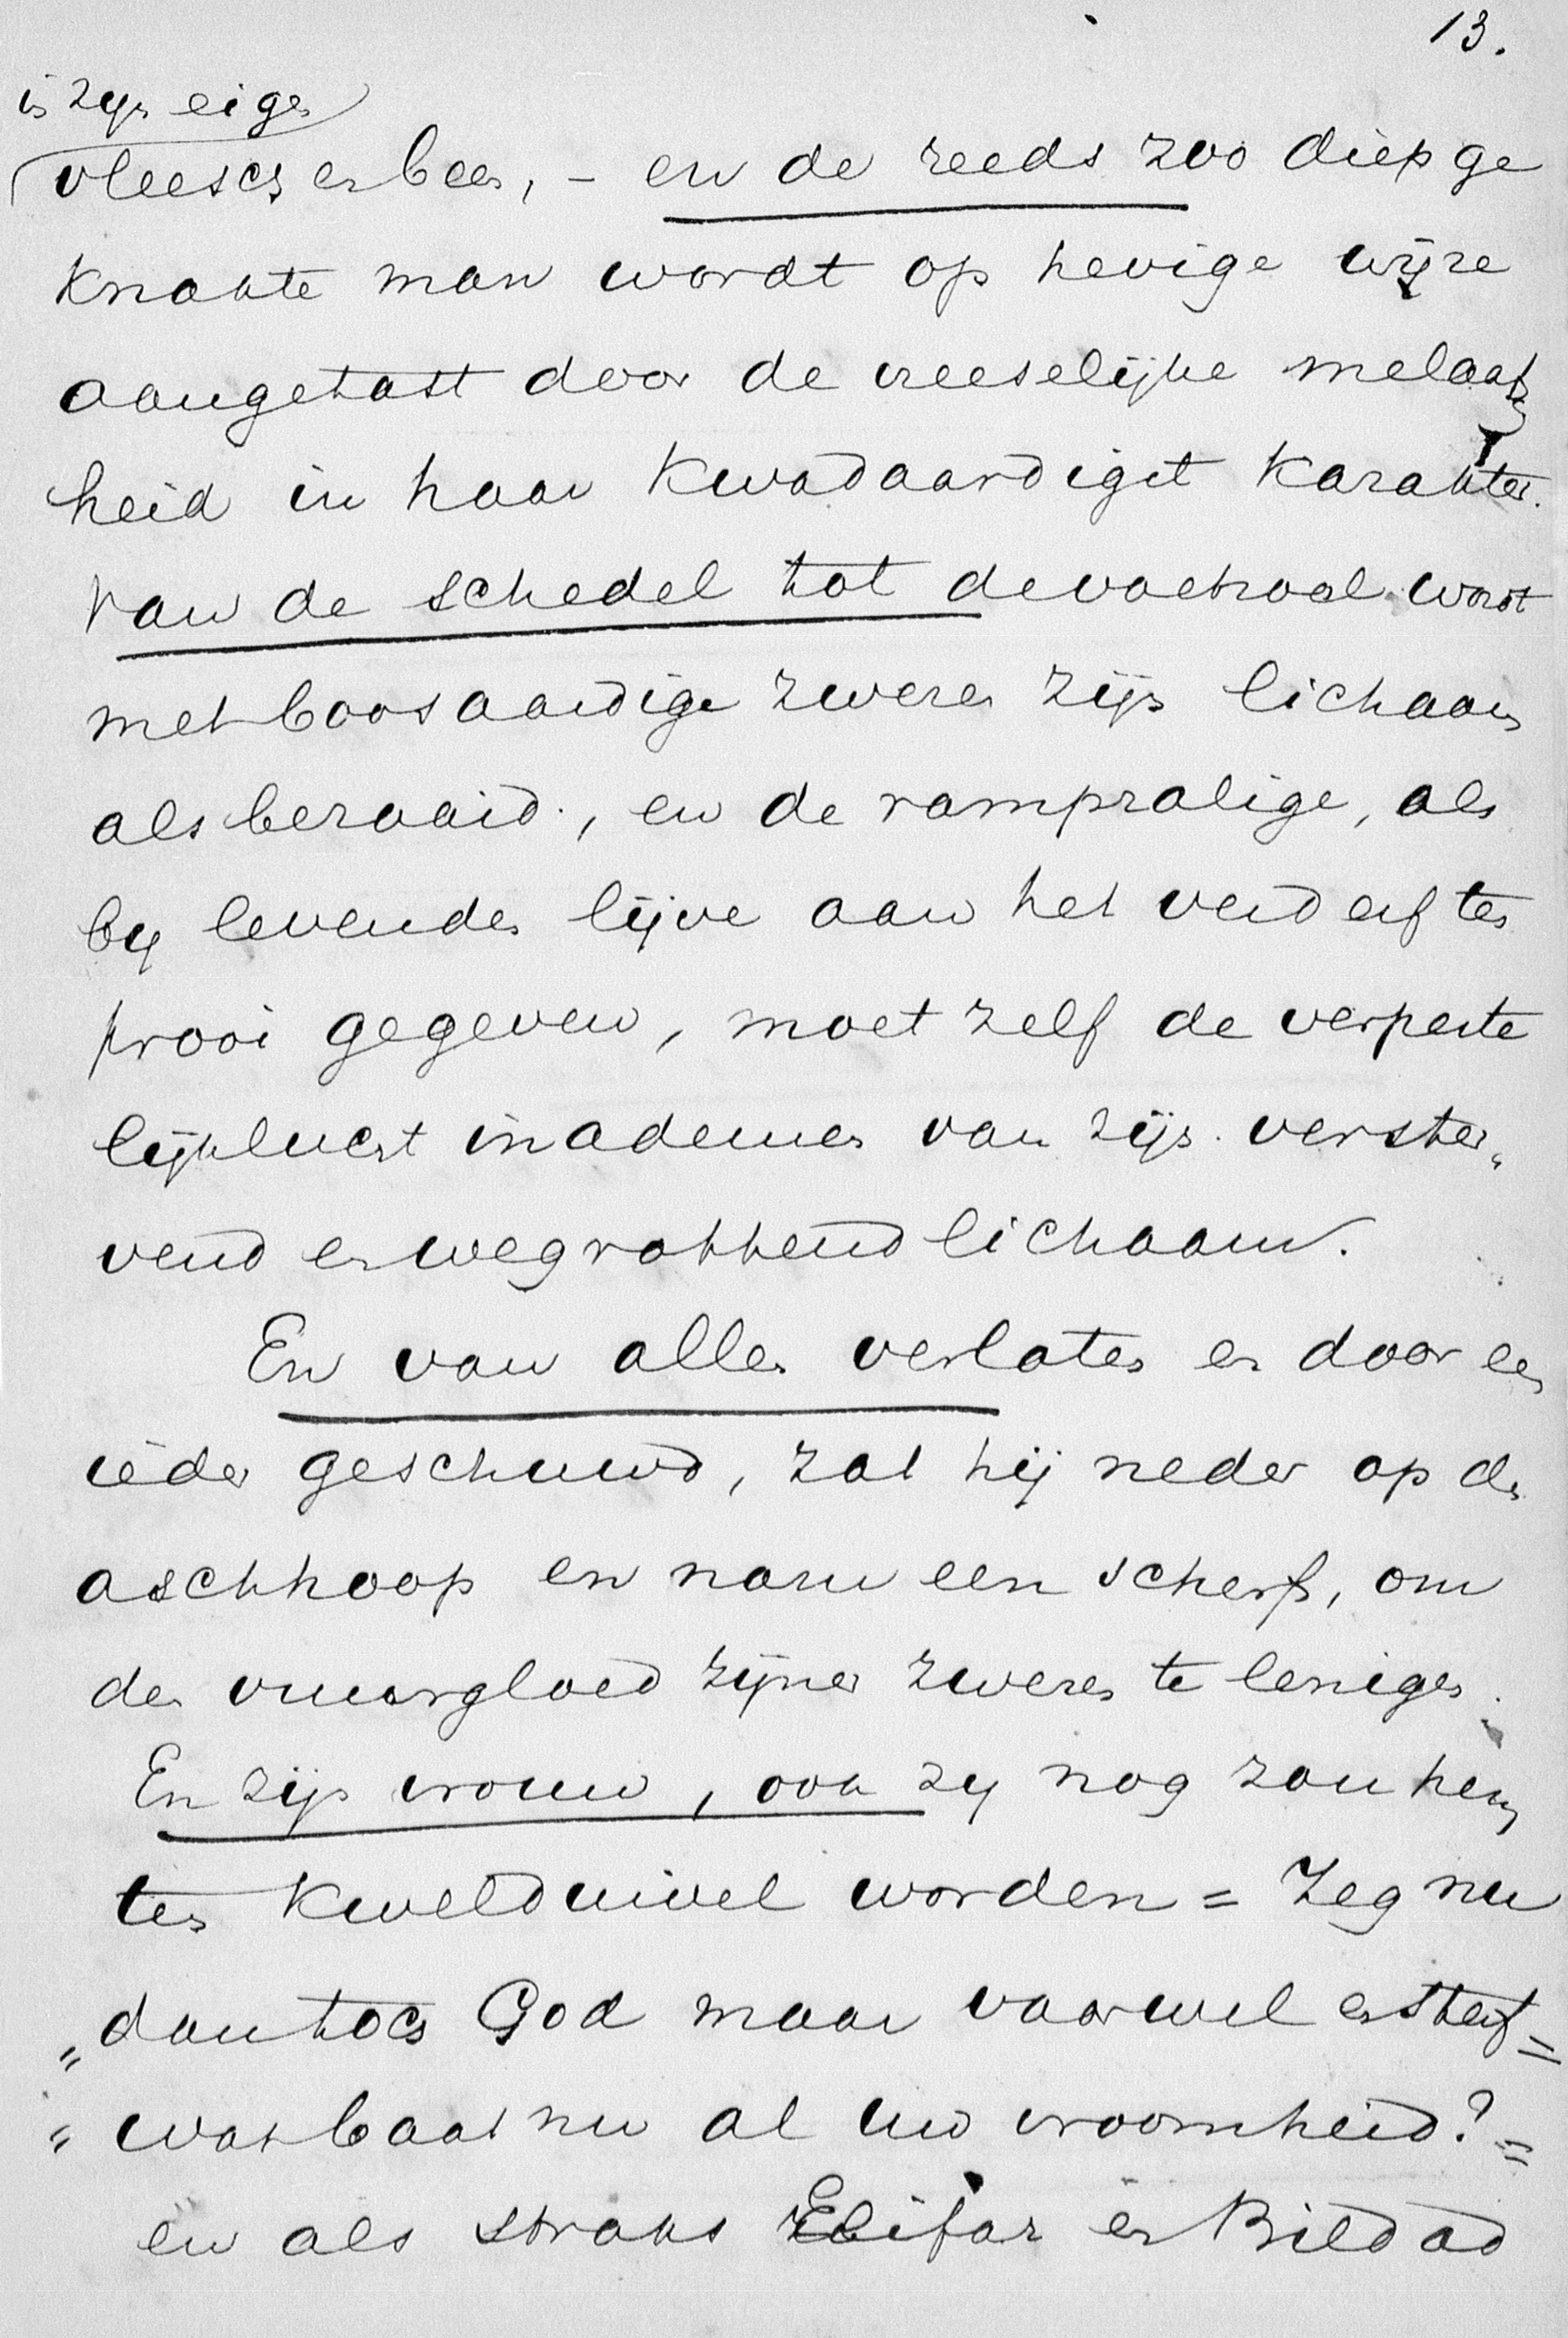 13.
in zijn eigen
vleesch en been, – en de reeds zoo diep ge
knakte man wordt op hevige wijze
aangetast door de vreeselijke melaatsch
heid in haar kwadaardigst karakter.
Van de schedel tot de voetzool wordt
met boosaardige zweren zijn lichaam
als bezaaid, en de rampzalige, als
bij levenden lijve aan het verderf ten
prooi gegeven, moet zelf de verpeste
lijklucht inademen van zijn verster„
vend en wegrottend lichaam.
En van allen verlaten en door een
ieder geschuwd, zat hij neder op den
aschhoop en nam een scherf, om
den vuurgloed zijner zweren te lenigen.
En zijn vrouw, ook zij nog zou hem
ten kwelduivel worden = Zeg nu
„dan toch God maar vaarwel en sterf =
„wat baat nu al uw vroomheid? =
en als straks Elifaz en Bildad